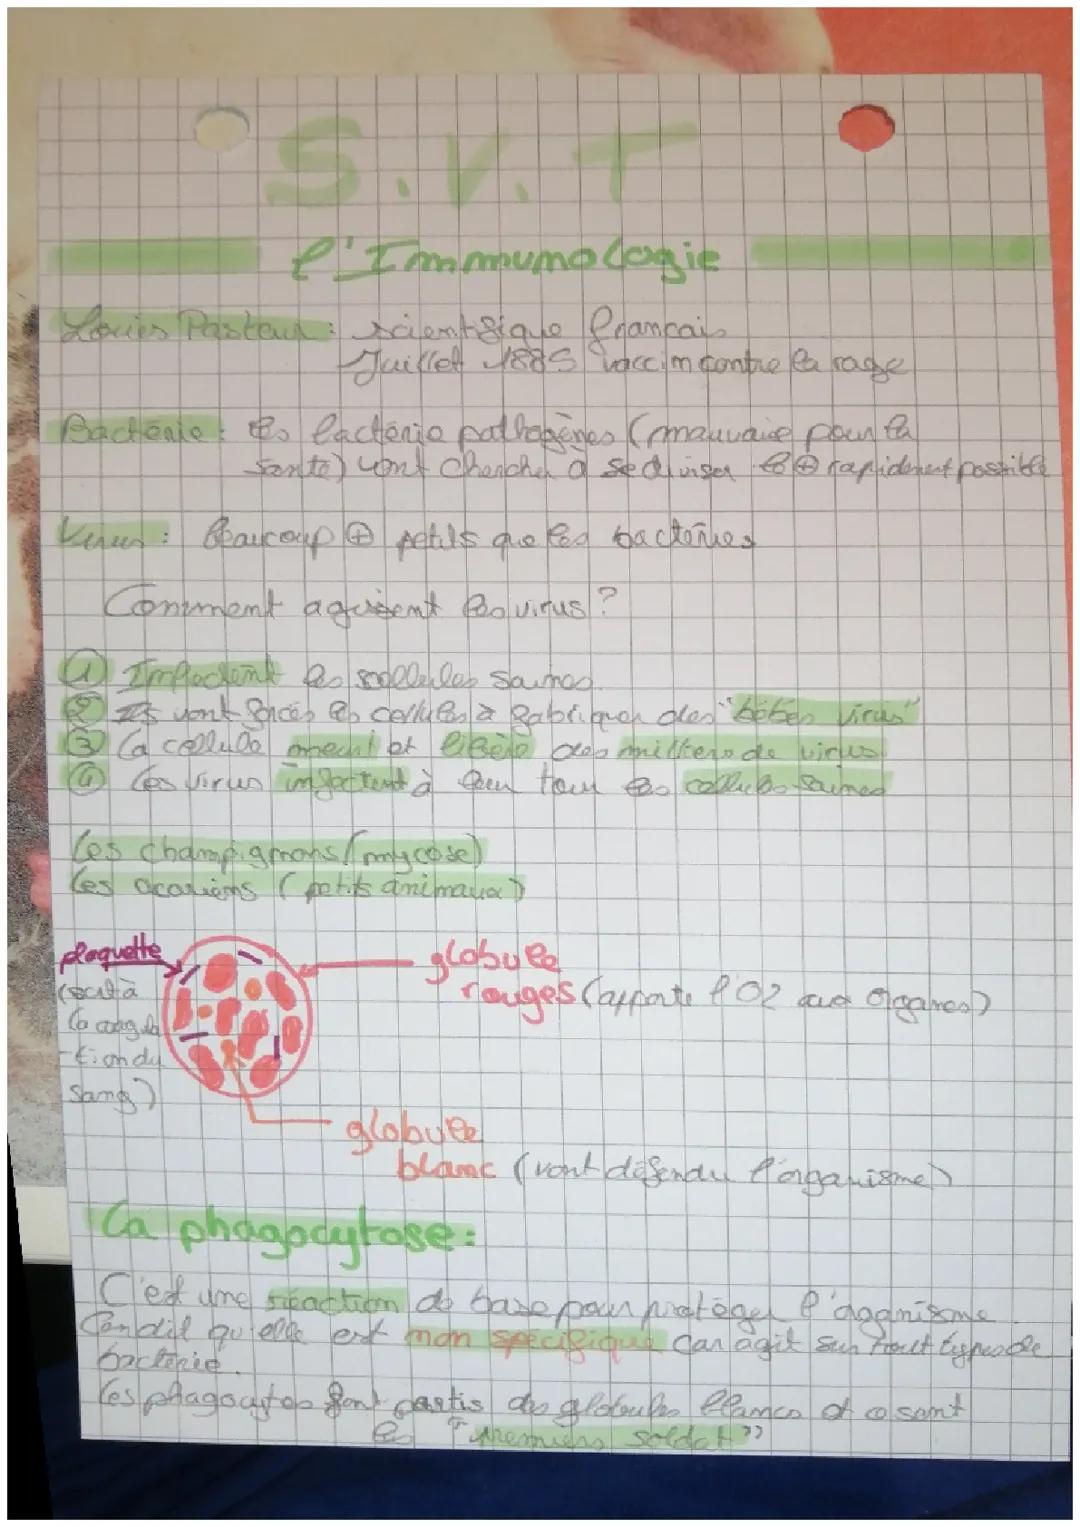 S.V.T
l'Immunologie
Louis Pasteur : scientifique français
Juillet 1885 vaccin contre la rage
Bactérie : les bactérie pathogènes (mauvaise pour la
santé) vont chercher à se diviser le ⊕ rapidement possible
Virus : Beaucoup ⊕ petits que les bactéries
Comment agissent les virus ?
① Infectent les cellules saines
② Ils vont forcés les cellules à fabriquer des "bébés virus"
③ la cellule meurt et libère des milliers de virus
④ les virus infectent à leur tour les cellules saines
les champignons (mycose)
les acariens (petits animaux)
plaquette
(sert à
la coagula
-tion du
sang)
globule
rouges (apporte l'O2 aux organes)
globule
blanc (vont défendre l'organisme)
la phagocytose :
C'est une réaction de base pour protéger l'oganisme
On dit qu'elle est non spécifique car agit sur tout types de
bactérie.
les phagocytes font partis des globules blancs et ce sont
les "premiers soldat"